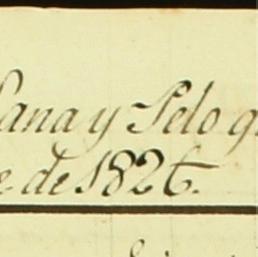 Lana y Pelo q
e de 1826.